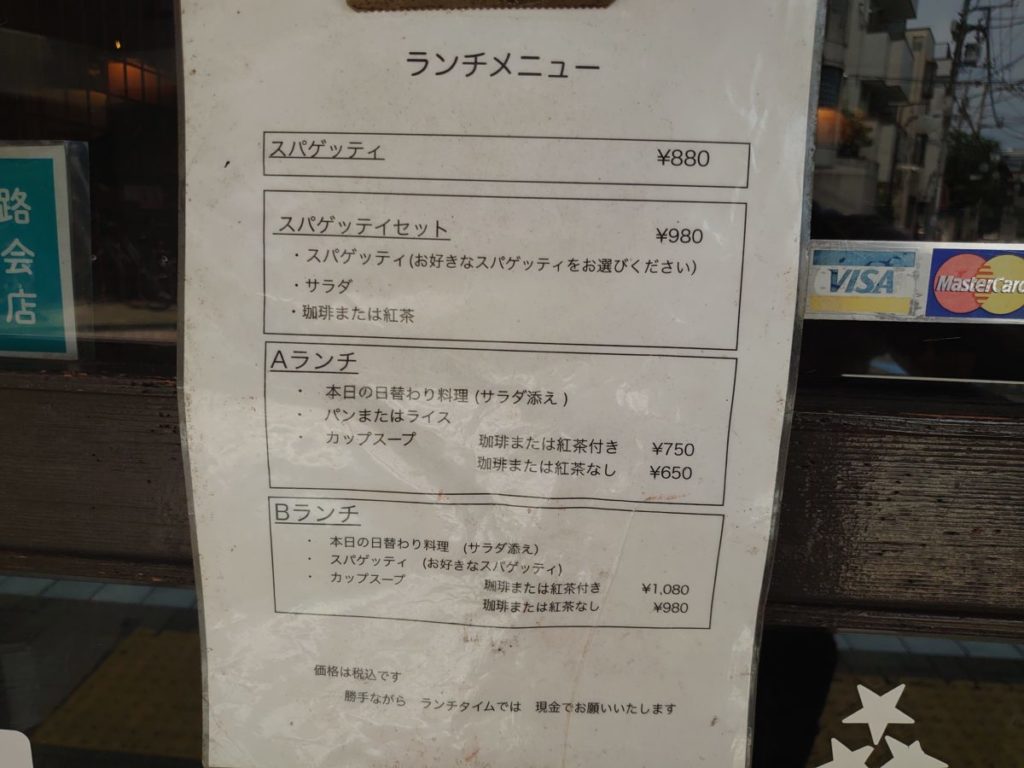 ランチメニュー
スパゲッティ ¥880
スパゲッテイセット ¥980
・スパゲッティ(お好きなスパゲッティをお選びください)
・サラダ
・珈琲または紅茶
Aランチ
・ 本日の日替わり料理 (サラダ添え )
・ パンまたはライス
・ カップスープ 珈琲または紅茶付き ¥750
珈琲または紅茶なし ¥650
Bランチ
・ 本日の日替わり料理 (サラダ添え)
・ スパゲッティ (お好きなスパゲッティ)
・ カップスープ 珈琲または紅茶付き ¥1,080
珈琲または紅茶なし ¥980
価格は税込です
勝手ながら ランチタイムでは 現金でお願いいたします
路
会
店
VISA
MasterCard